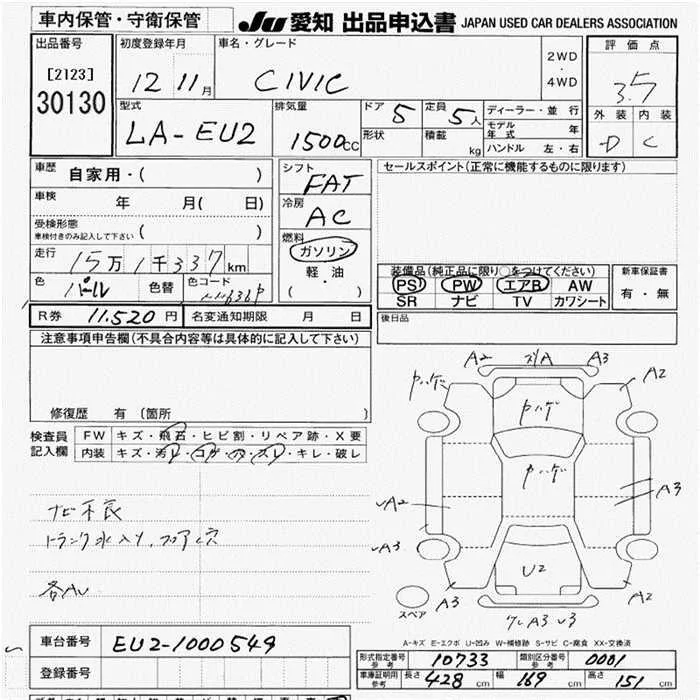 車内保管・守衛保管
JU 愛知 出品申込書 JAPAN USED CAR DEALERS ASSOCIATION
出品番号
[2123]
30130
初度登録年月
12 11月
車名・グレード
CIVIC
2WD
・
4WD
評価点
3.5
外装 内装
D C
型式
LA-EU2
排気量
1500cc
ドア 5
形状
定員 5人
積載 kg
ディーラー・並行
モデル年式 年
ハンドル 左・右
車歴 自家用・( )
車検 年 月( 日)
受検形態
車検付きのみ記入して下さい ( )
走行 15万1千337km
色 パール 色替 色コード
シフト
FAT
冷房
AC
燃料
ガソリン
軽・油
( )
セールスポイント(正常に機能するものに限ります)
装備品(純正品に限り○をつけてください)
PS PW エアB AW
SR ナビ TV カワシート
新車保証書
有・無
R券 11.520円 名変通知期限 月 日
後日品
注意事項申告欄(不具合内容等は具体的に記入して下さい)
修復歴 有 (箇所 )
検査員
記入欄
FW キズ・飛石・ヒビ割・リペア跡・X要
内装 キズ・汚レ・コゲ・穴・スレ・キレ・破レ
ナビ不良
トランク水入り、フロア穴
各AU
A2 A3
A2
ウハゲ
ウハゲ
ウハゲ
A2 A3
A3
U2
A3 A2
スペア
A3
A-キズ E-エクボ U-凹み W-補修跡 S-サビ C-腐食 XX-交換済
車台番号 EU2-1000549
登録番号
形式指定番号
参考
10733
類別区分番号
参考
0001
車庫証明用
参考
長さ 428cm 幅 169cm 高さ 151cm